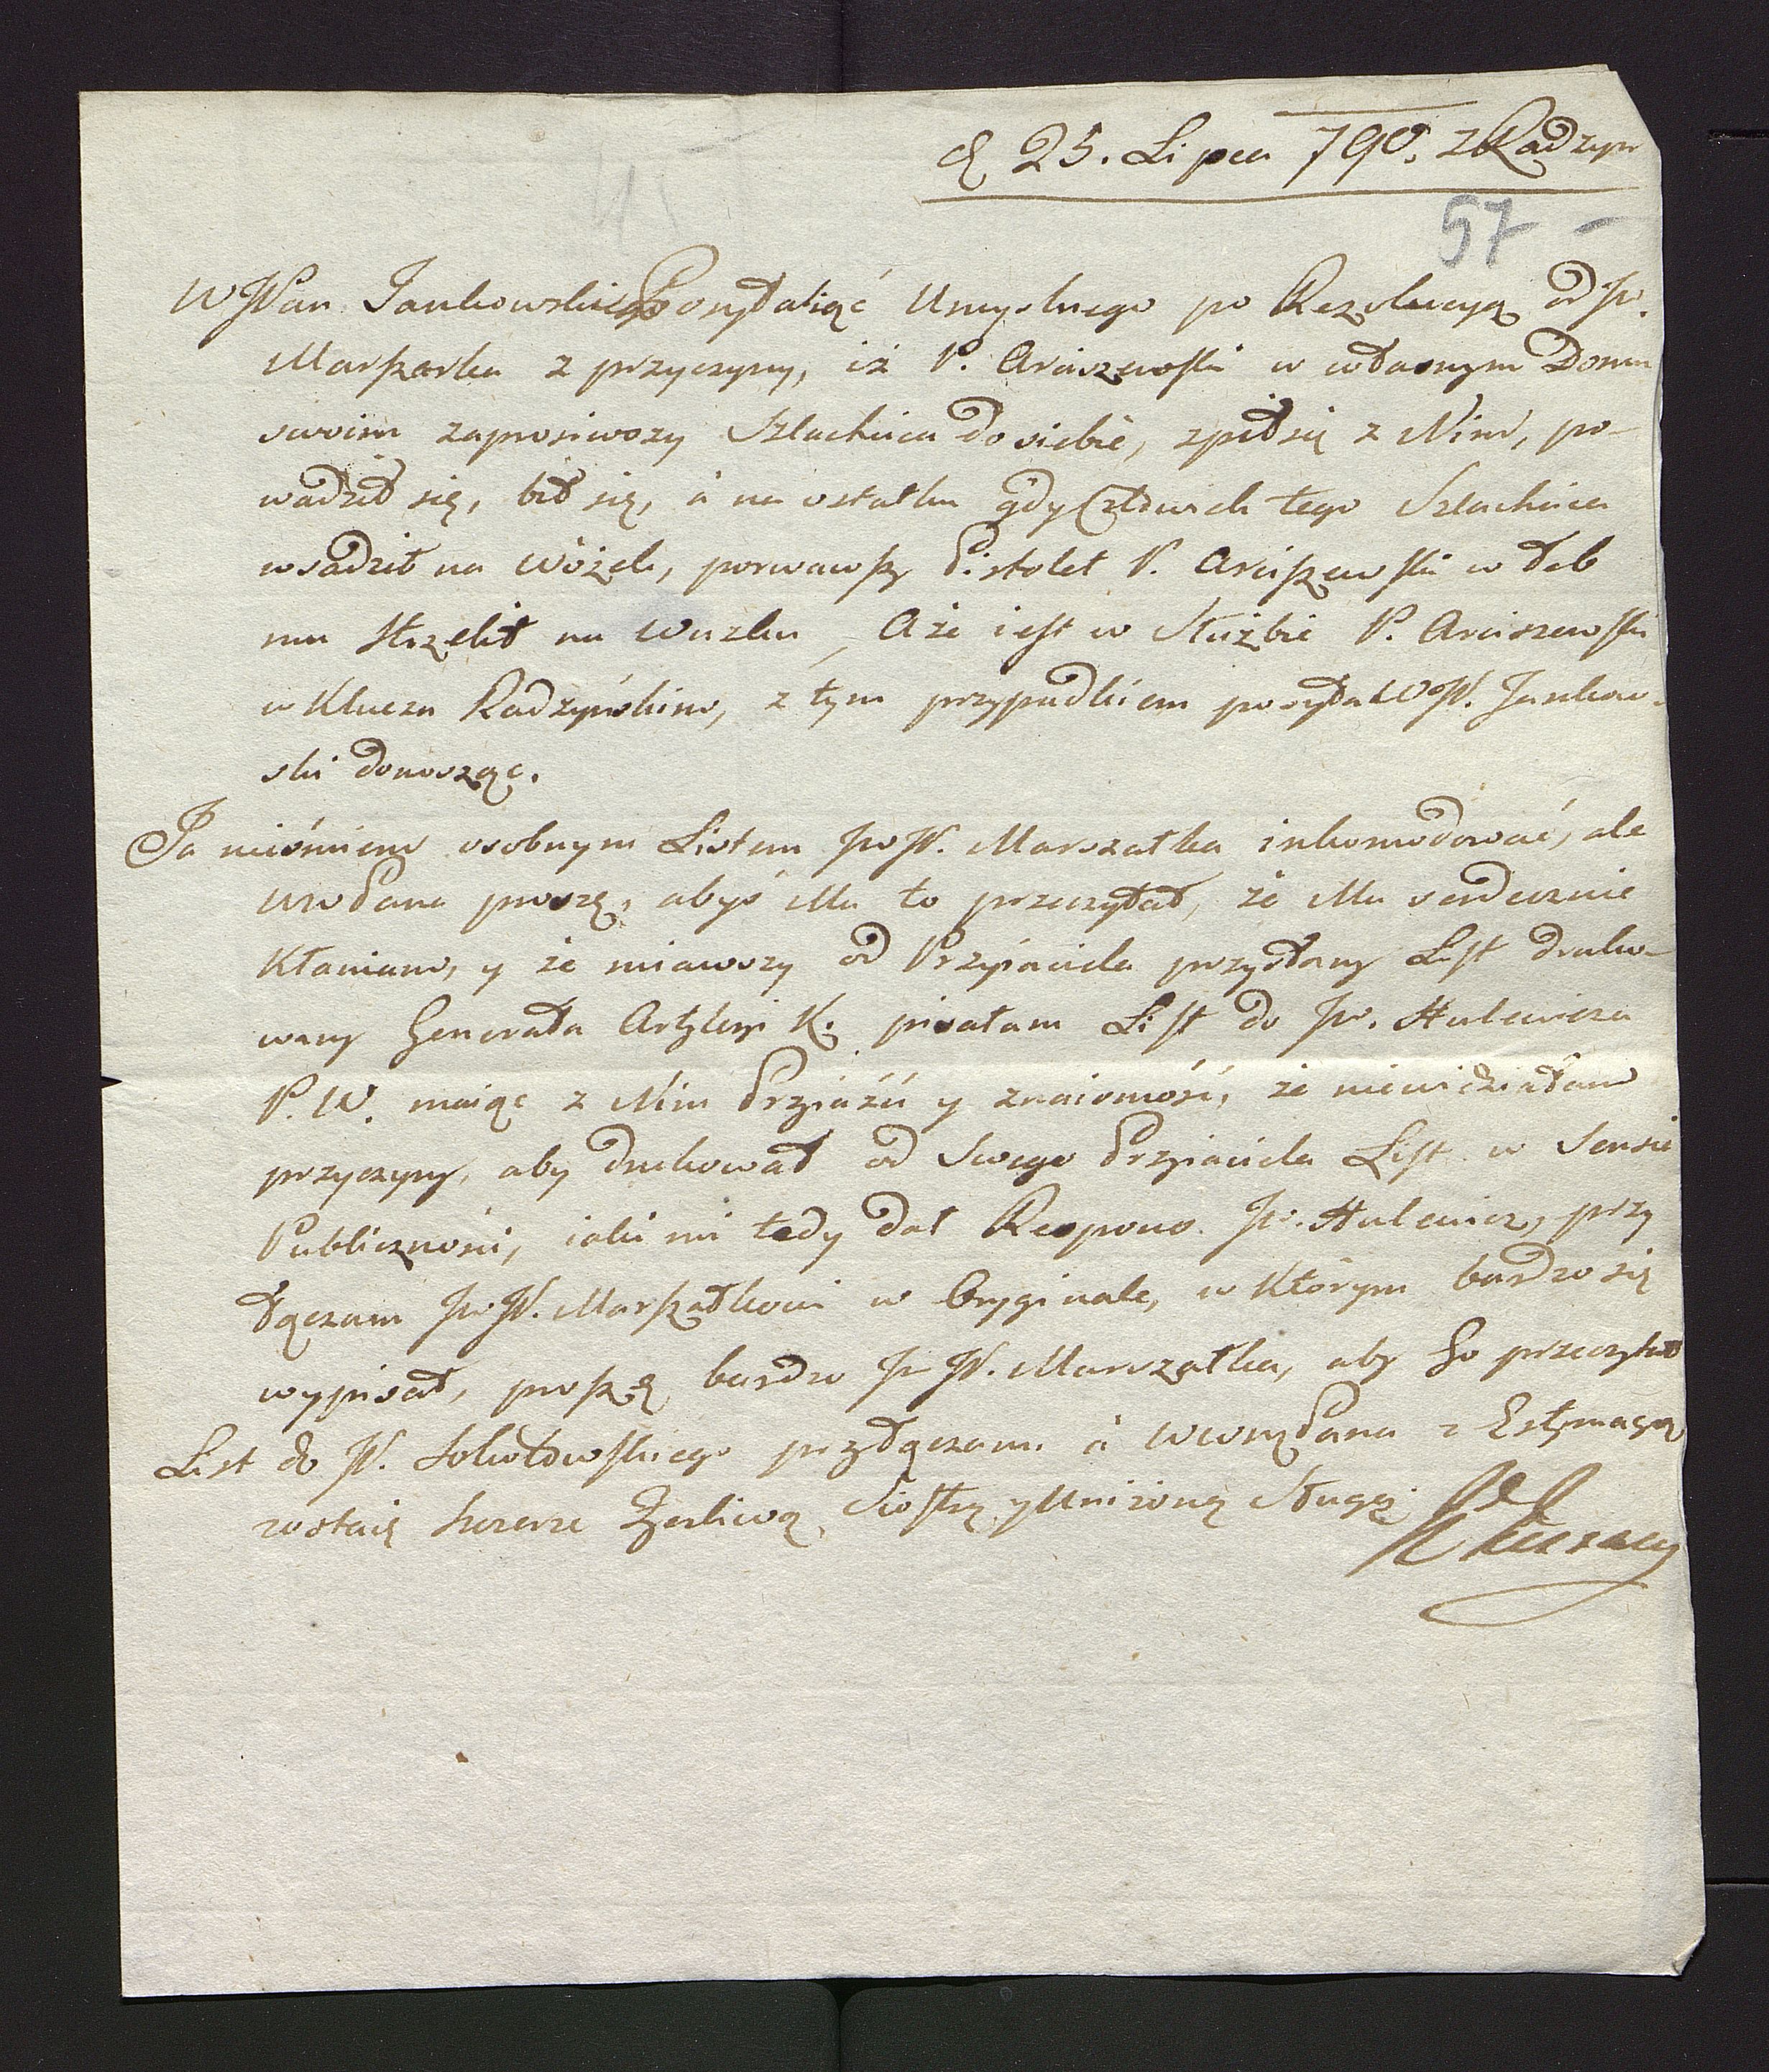 d 25. Lipca 790. z Radzyn
57 -
W JPan Jankowski posyłaiąc Umyslnego po Rezolucyą od Jw.
Marszałka z przyczyny, iż P. Arciszewski w własnym Domu
swoim zaprosiwszy Szlachcica do siebie, zpił się z Nim, po-
wadził się, bił się, á na ostatku gdy Człowiek tego Szlachcica
wsadził na Wózek, porwawszy Pistolet P. Arciszewski w łeb
mu strzelił na Wuzku, A że iest w Służbie P. Arciszewski
w Kluczu Radzyńskim, z tym przypadkiem posyła W JP. Jankow-
ski donosząc.
Ja nieśmiem osobnym Listem JwW. Marszałka inkomodować, ale
WwPana proszę, abyś Mu to przeczytał, że Mu serdecznie
Kłaniam, y że miawszy od Przyiaciela przysłany List druko-
wany Generała Artyleryi K. pisałam List do Jw. Hulewicza
P. W. maiąc z Nim Przyiaźń y znaiomość, że niewidziałam
przyczyny, aby drukował od Swego Przyiaciela List w Sensie
Publiczności, iaki mi tedy dał Respons Jw. Hulewicz, przy
łączam JwW. Marszałkowi w Oryginale, w Którym bardzo się
wypisał, proszę bardzo JwW. Marszałka, aby Go przeczytał
List do W. Sokołowskiego przyłączam á WwmPana z Estymacyą
zostaię Szczerze Życzliwą Siostrą y Uniżoną Sługą